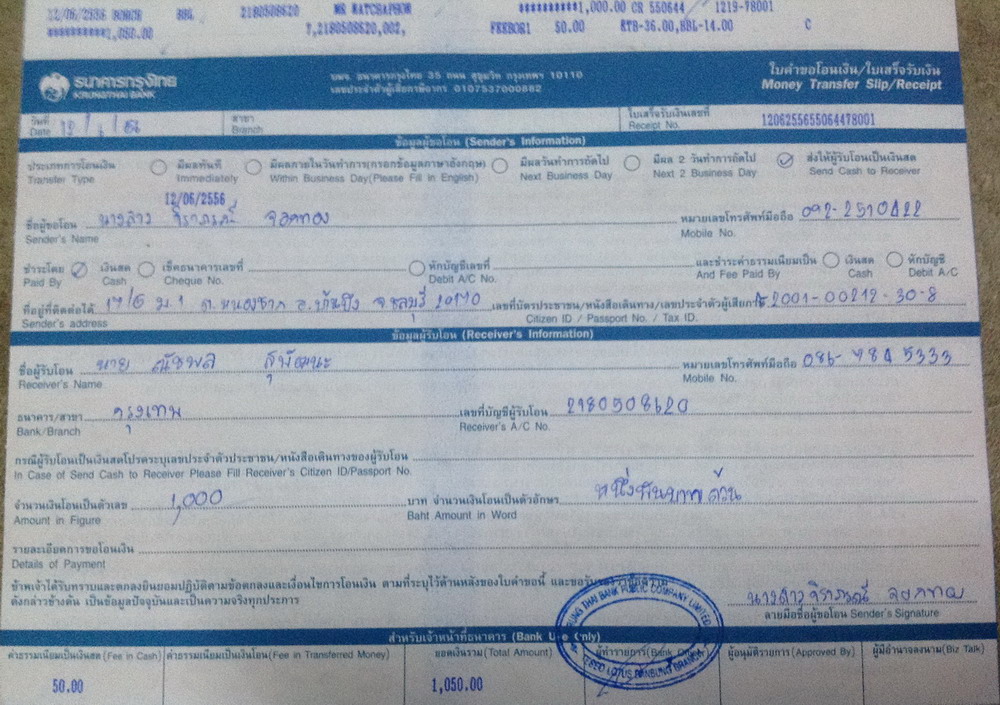 12/06/2556 BONGH BBL 2180508620 MR NATCHAPHON **********1,000.00 CR 550644 / 1219-78001
**********1,050.00 7,2180508620,002, FEEBOR1 50.00 KTB-36.00,BBL-14.00 C
ธนาคารกรุงไทย บมจ. ธนาคารกรุงไทย 35 ถนน สุขุมวิท กรุงเทพฯ 10110 ใบคำขอโอนเงิน/ใบเสร็จรับเงิน
KRUNGTHAI BANK เลขประจำตัวผู้เสียภาษีอากร 0107537000882 Money Transfer Slip/Receipt
วันที่ สาขา ใบเสร็จรับเงินเลขที่
Date 12/6/56 Branch Receipt No. 1206255655064478001
ข้อมูลผู้ขอโอน (Sender's Information)
ประเภทการโอนเงิน มีผลทันที มีผลภายในวันทำการ(กรอกข้อมูลภาษาอังกฤษ) มีผลวันทำการถัดไป มีผล 2 วันทำการถัดไป ส่งให้ผู้รับโอนเป็นเงินสด
Transfer Type Immediately Within Business Day(Please Fill in English) Next Business Day Next 2 Business Day Send Cash to Receiver
12/06/2556
ชื่อผู้ขอโอน นางสาว จิราภรณ์ จอกทอง หมายเลขโทรศัพท์มือถือ 092-2510422
Sender's Name Mobile No.
ชำระโดย เงินสด เช็คธนาคารเลขที่ หักบัญชีเลขที่ และชำระค่าธรรมเนียมเป็น เงินสด หักบัญชี
Paid By Cash Cheque No. Debit A/C No. And Fee Paid By Cash Debit A/C
ที่อยู่ที่ติดต่อได้ 17/6 ม.1 ต.หนองซาก อ.บ้านบึง จ.ชลบุรี 20170 เลขที่บัตรประชาชน/หนังสือเดินทาง/เลขประจำตัวผู้เสียภาษี 2001-00212-30-8
Sender's address Citizen ID / Passport No. / Tax ID.
ข้อมูลผู้รับโอน (Receiver's Information)
ชื่อผู้รับโอน นาย ณัชพล สุพัฒนะ หมายเลขโทรศัพท์มือถือ 086-984 5333
Receiver's Name Mobile No.
ธนาคาร/สาขา กรุงเทพ เลขที่บัญชีผู้รับโอน 2180508620
Bank/Branch Receiver's A/C No.
กรณีผู้รับโอนเป็นเงินสดโปรดระบุเลขประจำตัวประชาชน/หนังสือเดินทางของผู้รับโอน
In Case of Send Cash to Receiver Please Fill Receiver's Citizen ID/Passport No.
จำนวนเงินโอนเป็นตัวเลข 1,000 บาท จำนวนเงินโอนเป็นตัวอักษร หนึ่งพันบาทถ้วน
Amount in Figure Baht Amount in Word
รายละเอียดการขอโอนเงิน
Details of Payment
ข้าพเจ้าได้รับทราบและตกลงยินยอมปฏิบัติตามข้อตกลงและเงื่อนไขการโอนเงิน ตามที่ระบุไว้ด้านหลังของใบคำขอนี้ และขอรับรองว่า
ดังกล่าวข้างต้น เป็นข้อมูลปัจจุบันและเป็นความจริงทุกประการ นางสาวจิราภรณ์ จอกทอง
ลายมือชื่อผู้ขอโอน Sender's Signature
KRUNG THAI BANK PUBLIC COMPANY LIMITED
TESCO LOTUS BANBUNG BRANCH
สำหรับเจ้าหน้าที่ธนาคาร (Bank Use Only)
ค่าธรรมเนียมเป็นเงินสด (Fee in Cash) ค่าธรรมเนียมเป็นเงินโอน (Fee in Transferred Money) ยอดเงินรวม (Total Amount) ผู้ทำรายการ (Bank Officer) ผู้อนุมัติรายการ (Approved By) ผู้มีอำนาจลงนาม (Biz Talk)
50.00 1,050.00